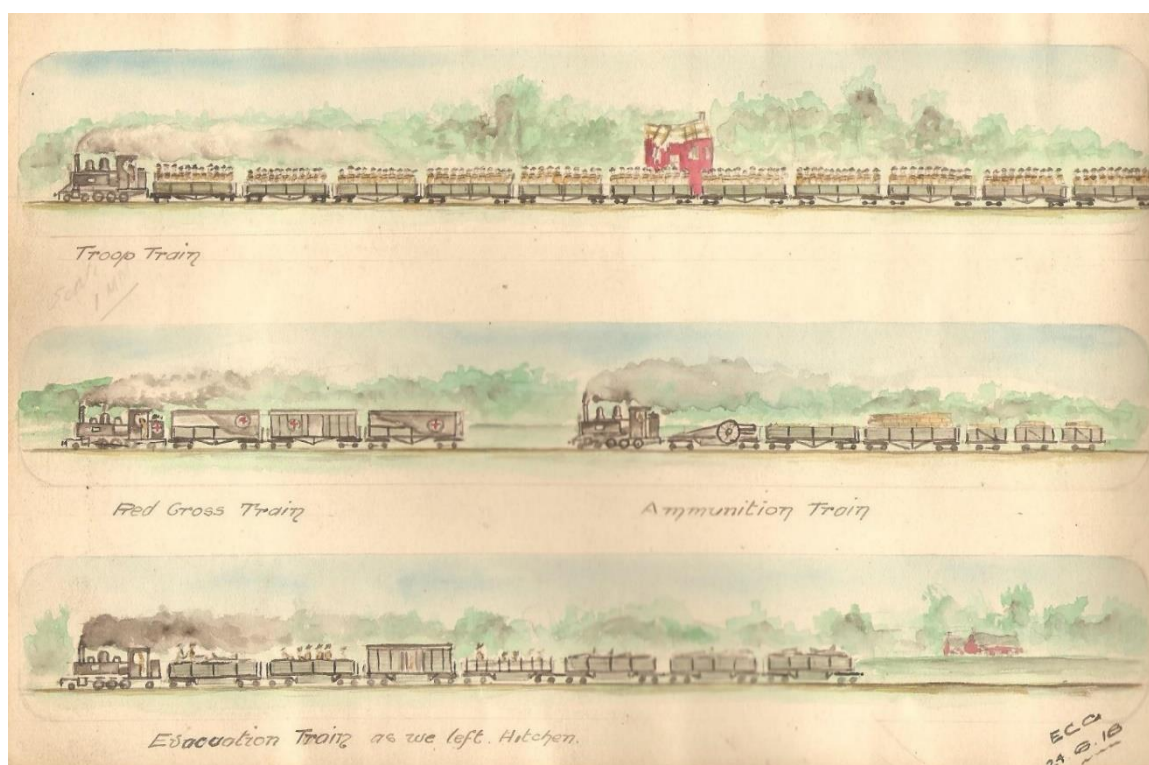 Troop Train
Red Cross Train
Ammunition Train
Evacuation Train as we left. Hitchen.
ECG